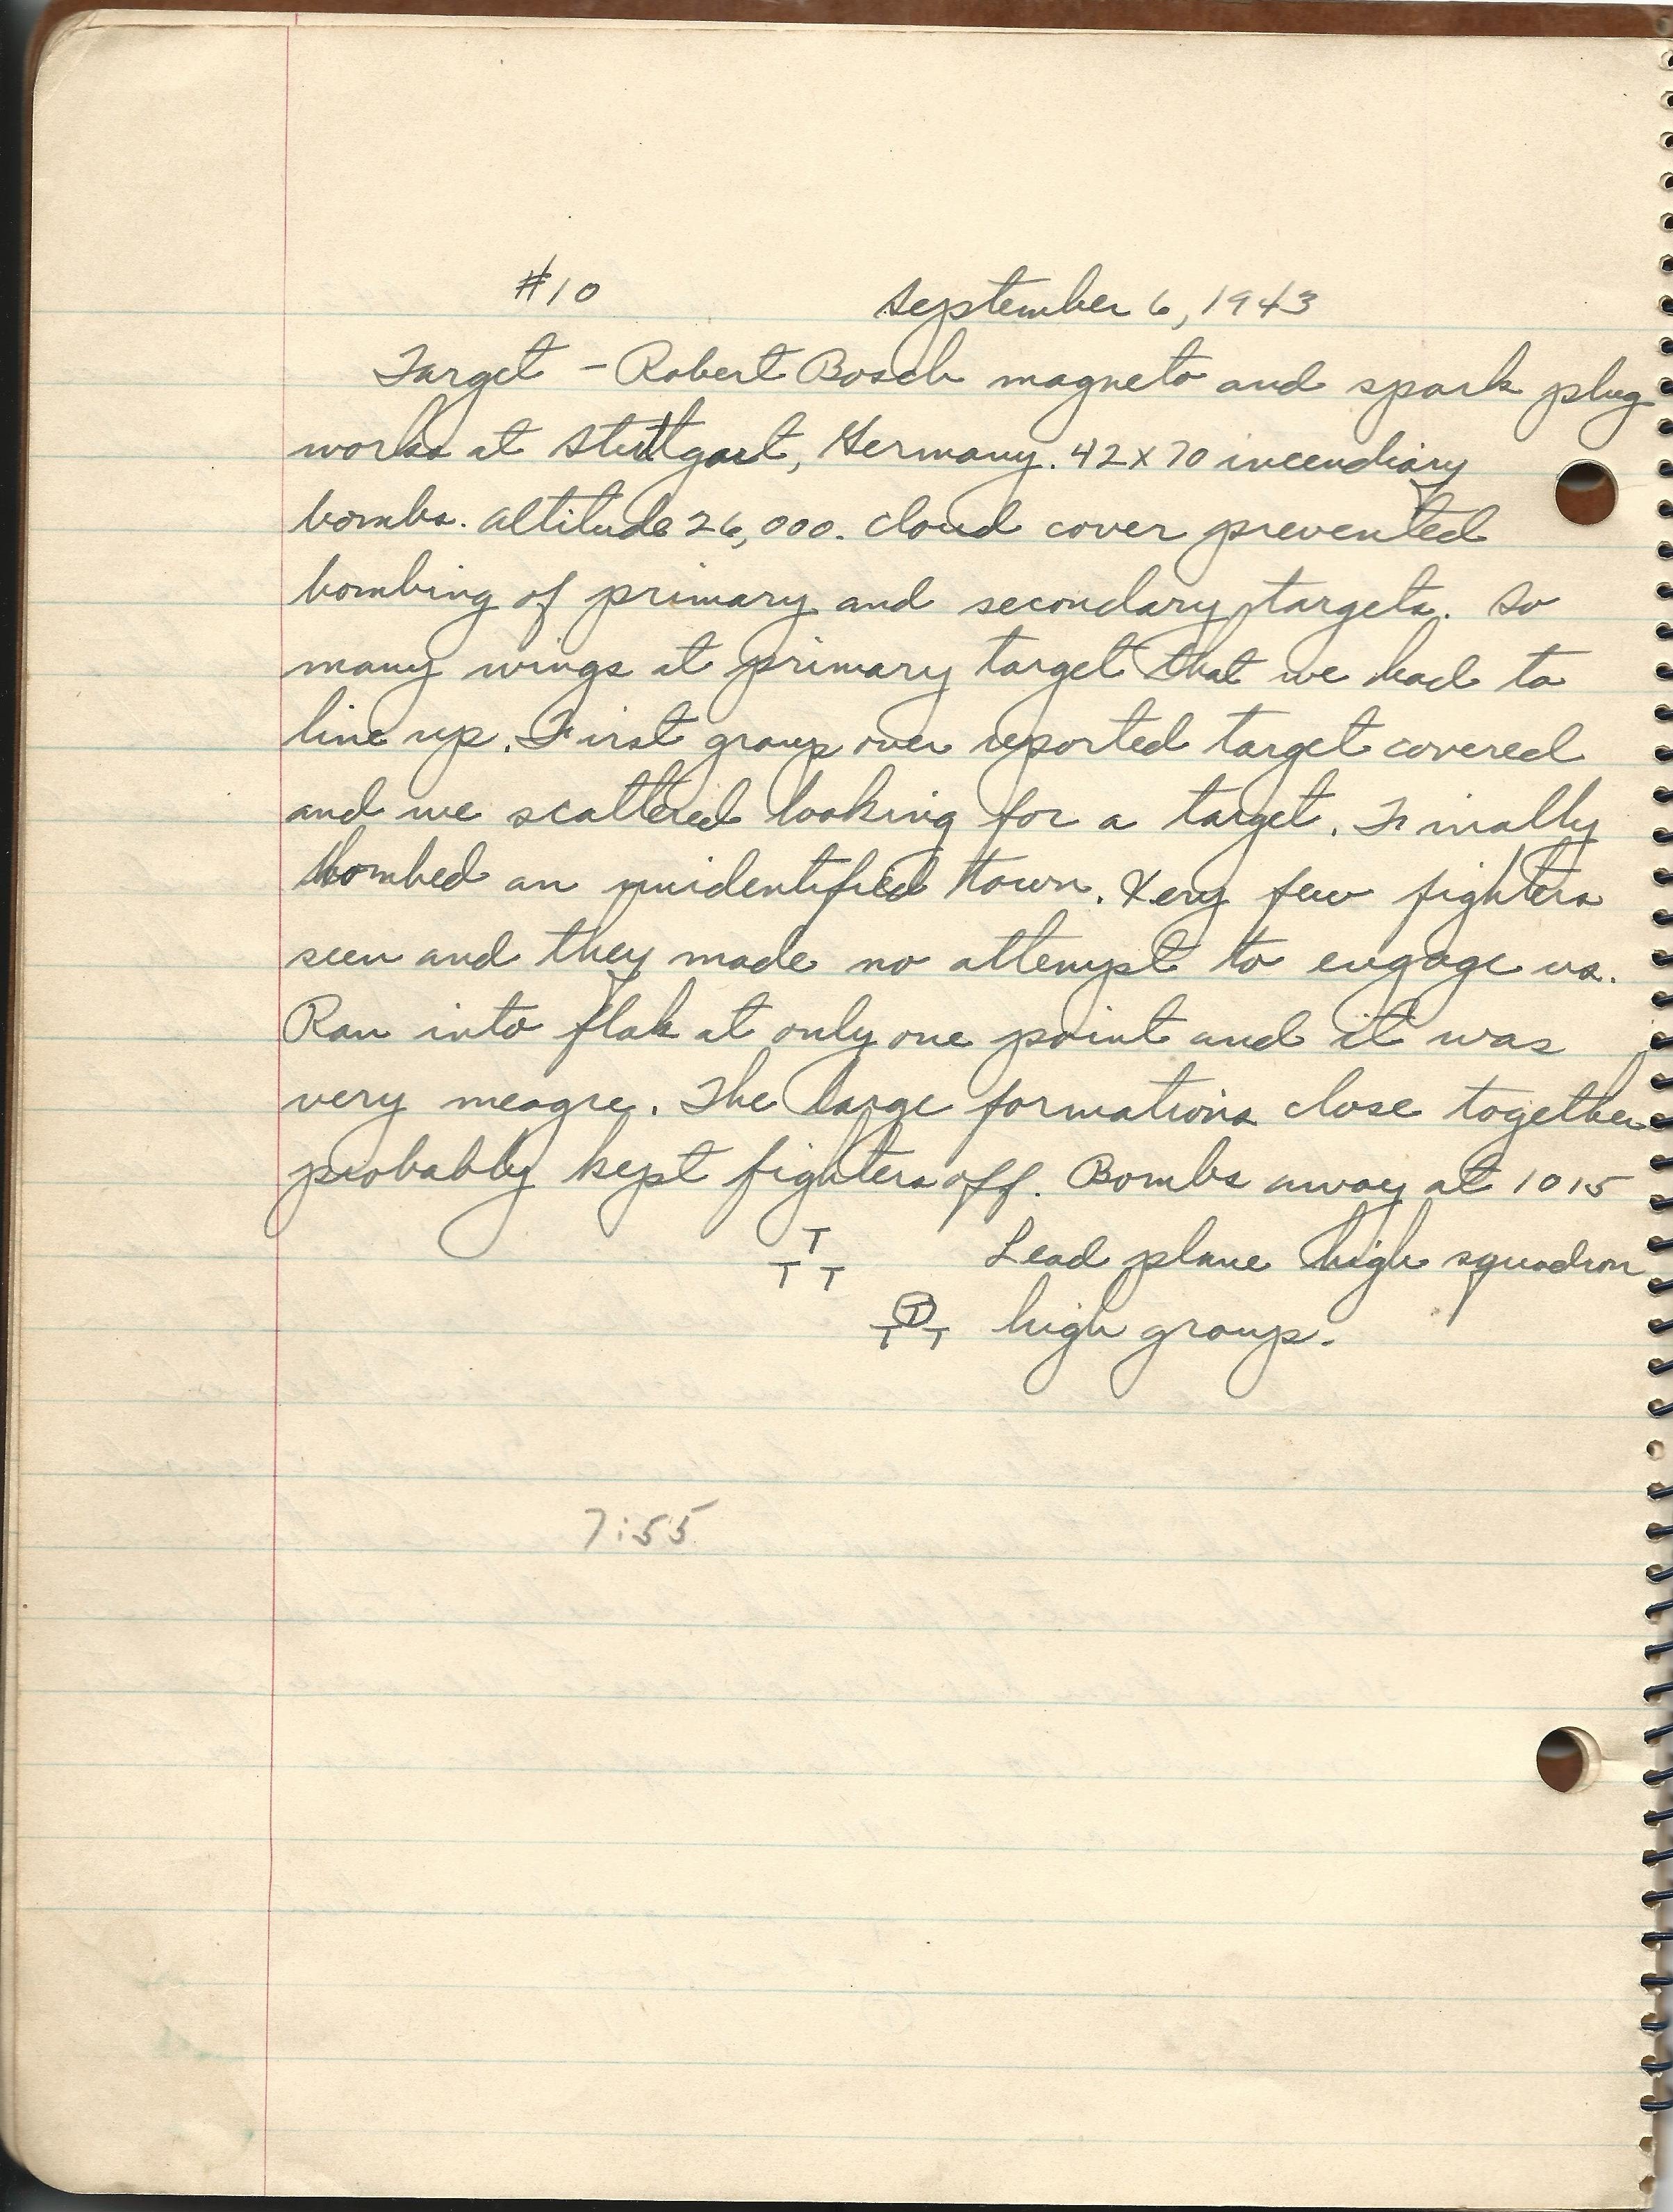 #10 September 6, 1943
Target - Robert Bosch magneto and spark plug
works at Stuttgart, Germany. 42 x 70 incendiary
bombs. Altitude 26,000. Cloud cover prevented
bombing of primary and secondary targets. So
many wings at primary target that we had to
line up. First group over reported target covered
and we scattered looking for a target. Finally
bombed an unidentified town. Very few fighters
seen and they made no attempt to engage us.
Ran into flak at only one point and it was
very meagre. The large formations close together
probably kept fighters off. Bombs away at 1015
T
T T Lead plane high squadron
T
T T high group.
7:55